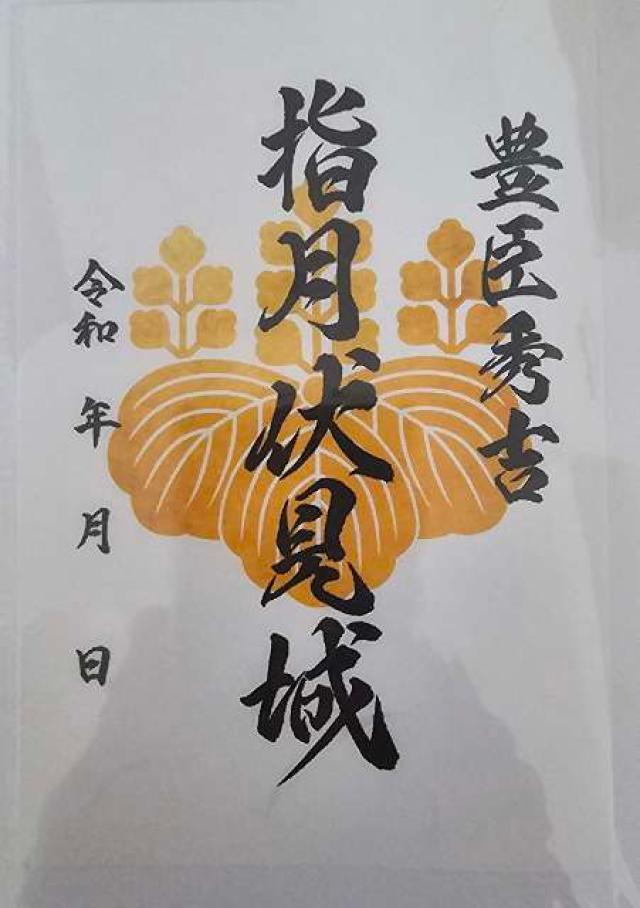 豊臣秀吉
指月伏見城
令和 年 月 日